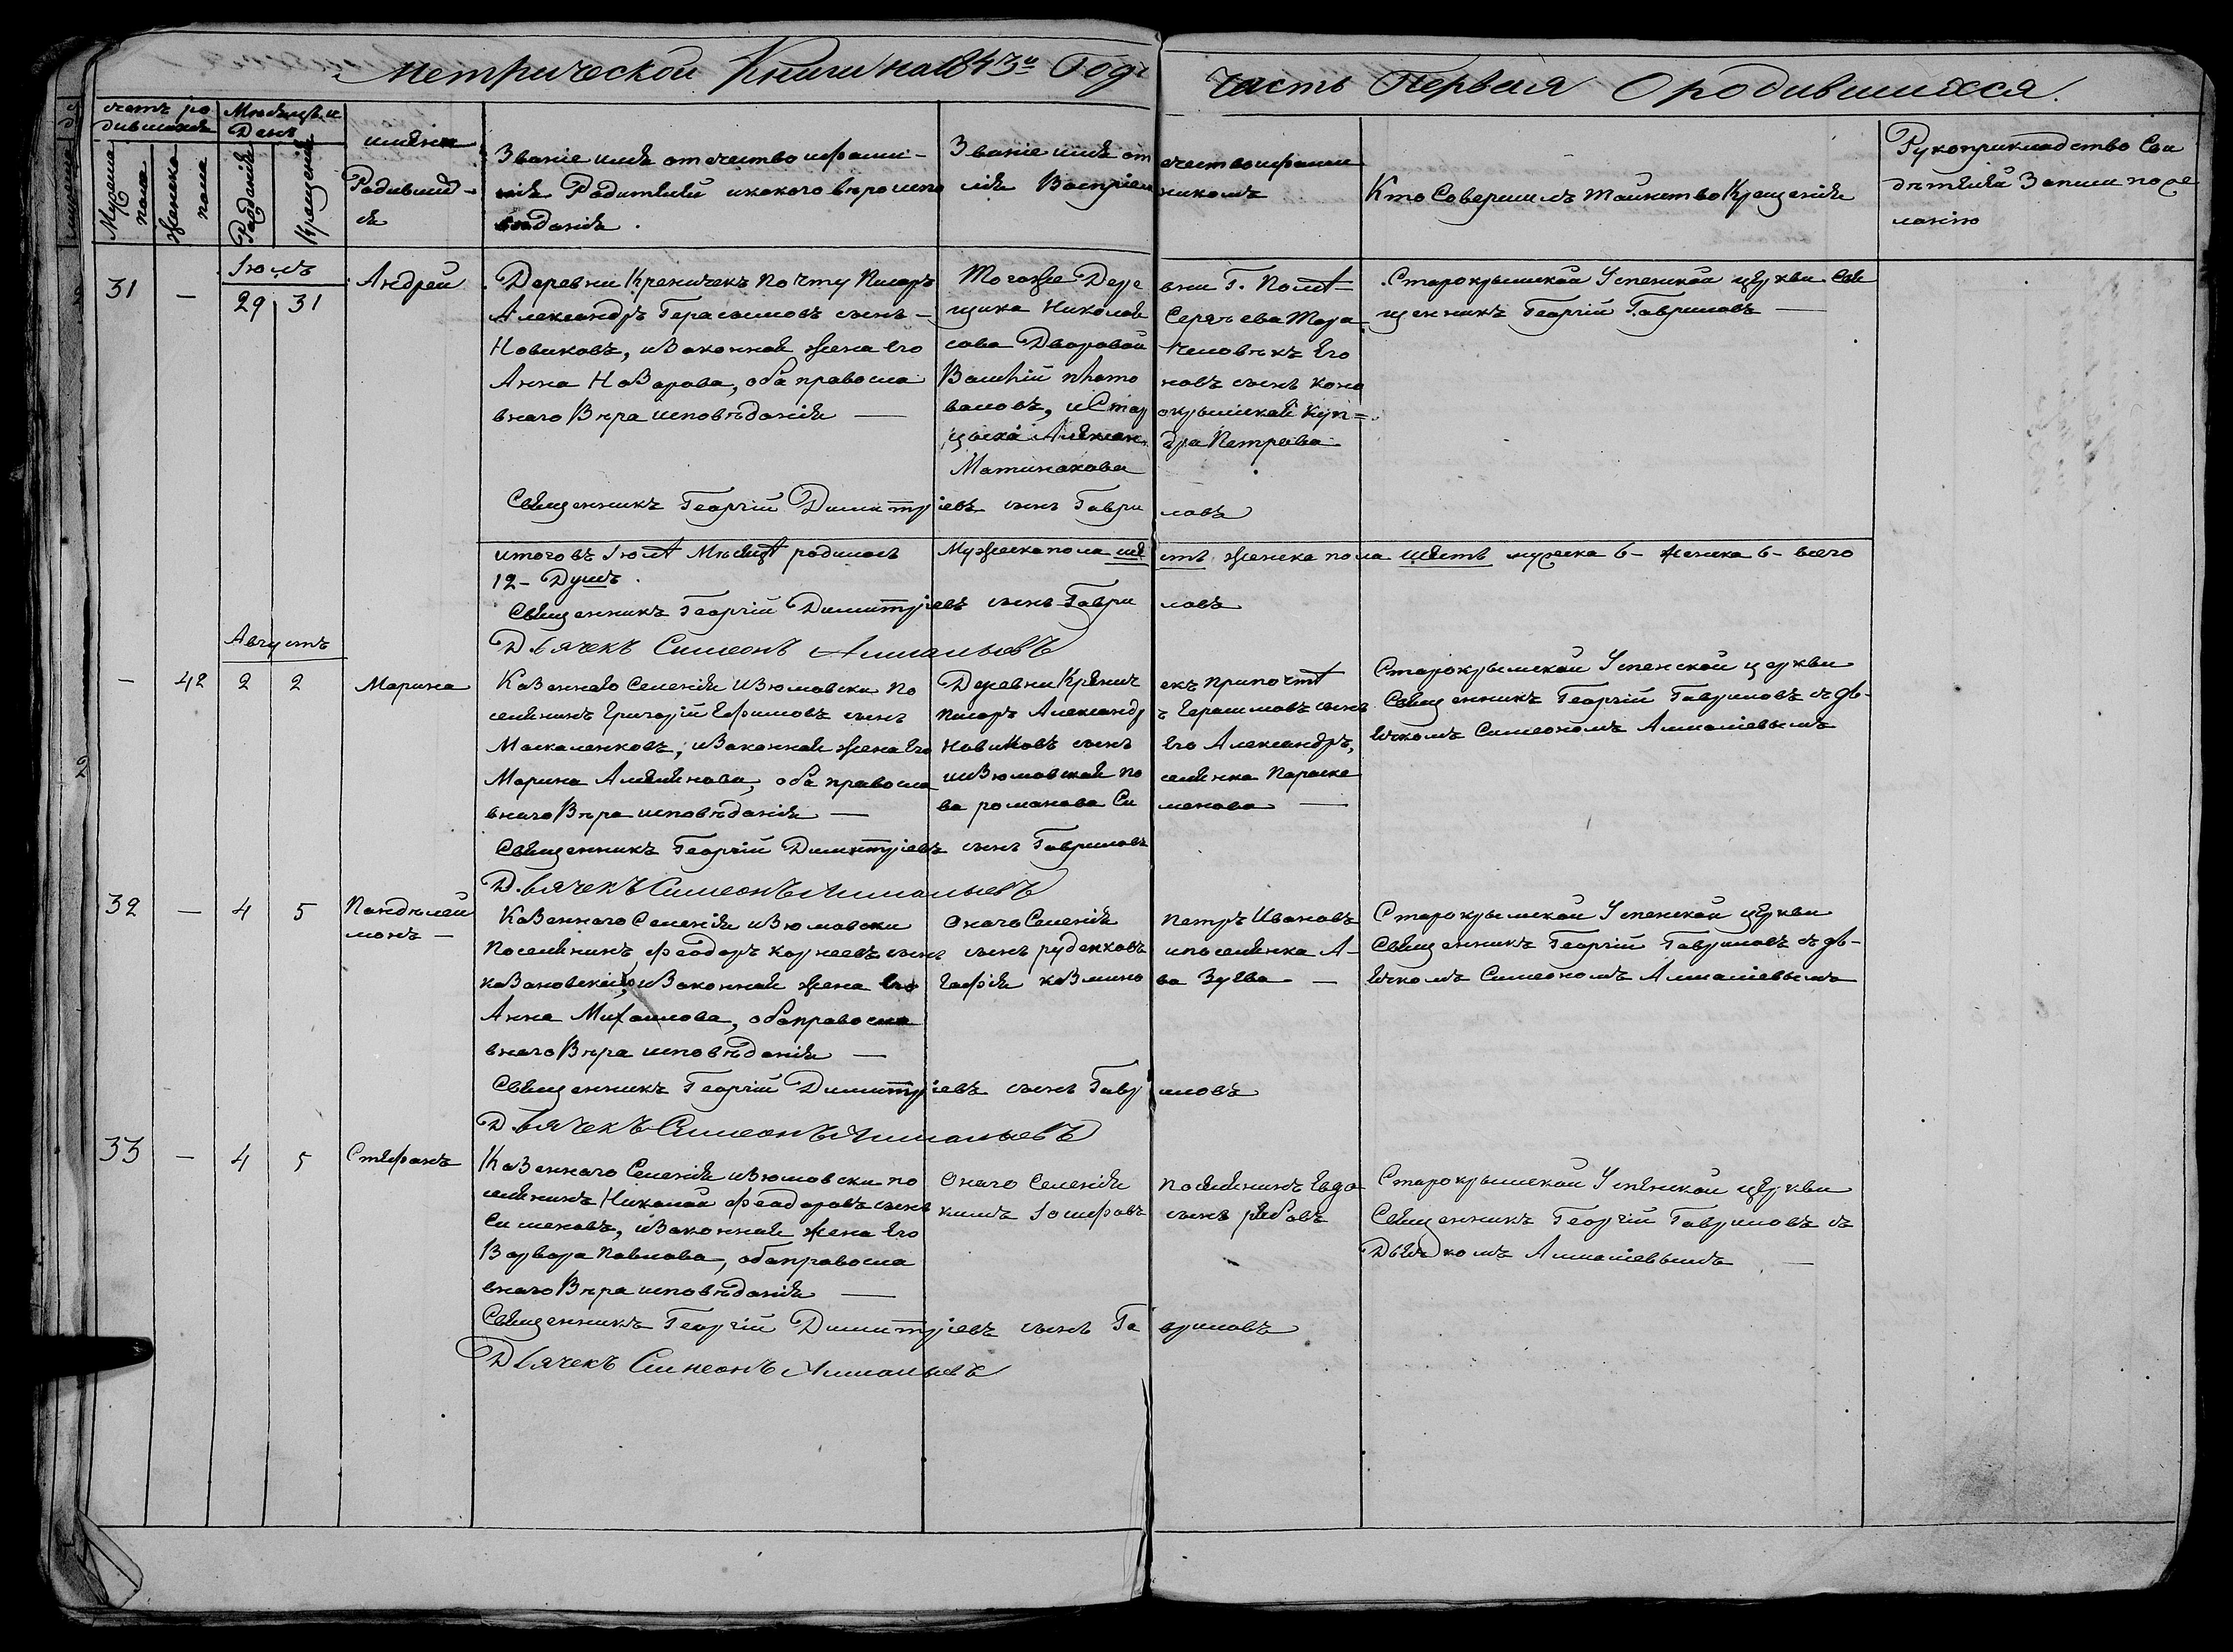 Метрической Книги на 1843й Годъ
Часть Первая О родившихся.
счетъ ро
дившихся
Мѣсяцъ и
День
Мужеска
пола
Женска
пола
Рожденія
Крещенія
имена
Родивших
ся
Званіе имя отечество и фами-
лія Родителей и какого вѣроиспо
веданія.
Званіе имя отечество и фами
лія Воспріемниковъ
Кто Совершилъ Таинство Крещенія
Рукоприкладство Сви
дѣтелей Записи по же
ланію
Іюль
31 — 29 31 Андрей
Деревни Креничекъ Почту Писарь
Александръ Герасимовъ сынъ —
Новиковъ, и Законная жена Его
Анна Назарова, оба правосла
внаго Вѣра исповѣданія —
Тогоже Деревни Г. Помѣ=
щика Николая Сергѣева
сова Дворовой Человѣкъ Его
сынъ Коно
валовъ, и Старокрымская Куп=
цыха Александра Петрова
Матинакова
Старокрымской Успенской церкви Свя
щенникъ Георгій Гавриловъ —
Священникъ Георгій Димитріевъ сынъ Гавриловъ
итого въ Іюлѣ Мѣсяцѣ родилось Мужеска пола шесть женска пола шесть мужеска 6 – женска 6 – всего
12 – Душъ.
Священникъ Георгій Димитріевъ сынъ Гавриловъ
Дьячекъ Симеонъ Ананьевъ
Августъ
— 42 2 2 Марина
Казеннаго Селенія Изюмовски по
селянинъ Григорій Ефимовъ сынъ
Маскаленковъ, и Законная жена Его
Марина, оба правосла
внаго Вѣра исповѣданія —
Деревни Креничекъ при почтѣ
Писарь Александръ Герасимовъ сынъ
Новиковъ сынъ Его Александръ,
и Изюмовской поселянка Параске
ва романова Сименова —
Старокрымской Успенской церкви
Священникъ Георгій Гавриловъ съ дь-
ячкомъ Симеономъ Ананіевымъ
Священникъ Георгій Димитріевъ сынъ Гавриловъ
Дьячекъ Симеонъ Ананьевъ
32 — 4 5 Пандилей
монъ —
Казеннаго Селенія Изюмовски
Поселянинъ Феодоръ Корнеевъ сынъ
Казановскій, и Законная жена Его
Анна Михаилова, оба правосла
внаго Вѣра исповѣданія —
Онаго Селенія Петръ Ивановъ
сынъ руденковъ и поселянка А-
гафія Козмина Зуева —
Старокрымской Успенской церкви
Священникъ Георгій Гавриловъ съ дь-
ячкомъ Симеономъ Ананіевымъ
Священникъ Георгій Димитріевъ сынъ Гавриловъ
Дьячекъ Симеонъ Ананьевъ
33 — 4 5 Стефанъ
Казеннаго Селенія Изюмовски по
селянинъ Николай Феодоровъ сынъ
Сименовъ, и Законная жена Его
Варвара Павлова, оба правосла
внаго Вѣра исповѣданія —
Онаго Селенія поселянинъ Евдо
кимъ Іосифовъ сынъ рябовъ
Старокрымской Успенской церкви
Священникъ Георгій Гавриловъ съ
Дьячкомъ Ананіевымъ —
Священникъ Георгій Димитріевъ сынъ Гавриловъ
Дьячекъ Симеонъ Ананьевъ